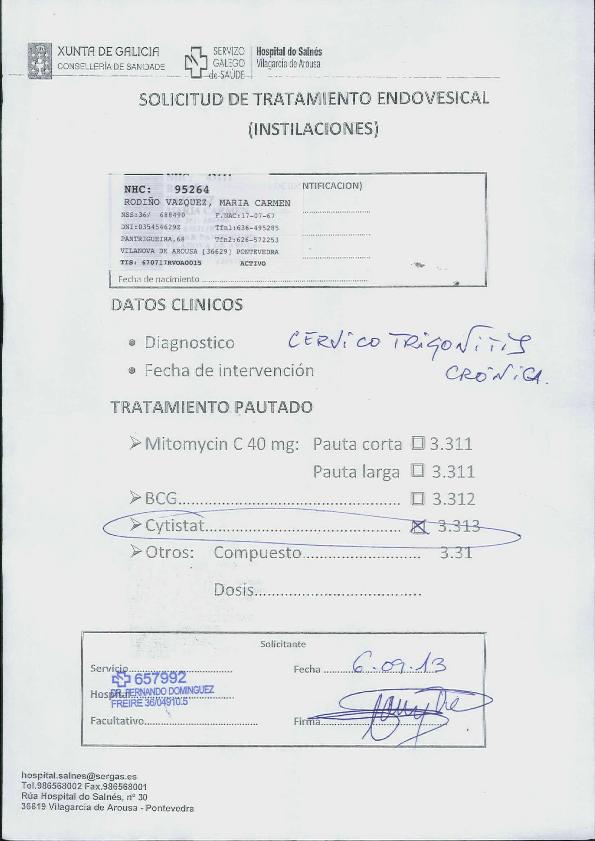 XUNTA DE GALICIA
CONSELLERÍA DE SANIDADE
SERVIZO
GALEGO
de SAÚDE
Hospital do Salnés
Vilagarcía de Arousa
SOLICITUD DE TRATAMIENTO ENDOVESICAL
(INSTILACIONES)
NTIFICACION)
NHC: 95264
RODIÑO VAZQUEZ, MARIA CARMEN
NSS:36/ 688490 F.NAC:17-07-67
DNI:035456629Z Tfn1:636-495285
PANTRIGUEIRA,68 Tfn2:626-572253
VILANOVA DE AROUSA [36629] PONTEVEDRA
TIS: 670717RVOA0015 ACTIVO
Fecha de nacimiento
DATOS CLINICOS
• Diagnostico CERVICO TRIGONITIS
• Fecha de intervención CRÓNICA.
TRATAMIENTO PAUTADO
➢Mitomycin C 40 mg: Pauta corta ☐ 3.311
Pauta larga ☐ 3.311
➢BCG.................................................. ☐ 3.312
➢Cytistat............................................. ☒ 3.313
➢Otros: Compuesto........................... 3.31
Dosis......................................
Solicitante
Servicio
Fecha 6.09.13
657992
Hospital
DR. FERNANDO DOMINGUEZ
FREIRE 36/04910.5
Facultativo
Firma
hospital.salnes@sergas.es
Tel.986568002 Fax.986568001
Rúa Hospital do Salnés, nº 30
36619 Vilagarcía de Arousa - Pontevedra